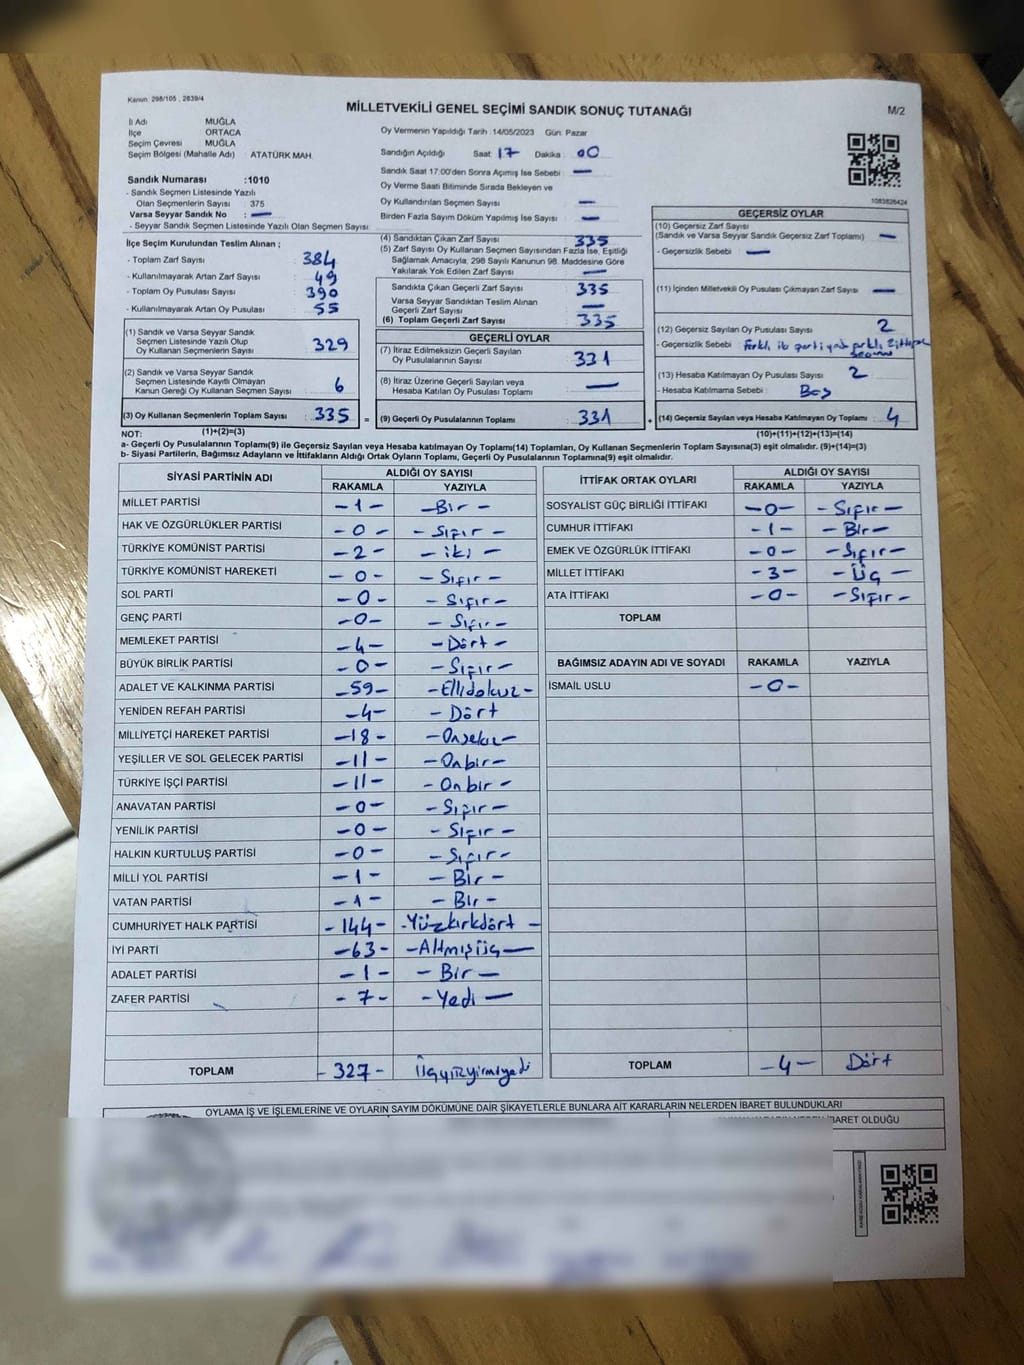 Kanun: 298/105 , 2839/4
MİLLETVEKİLİ GENEL SEÇİMİ SANDIK SONUÇ TUTANAĞI
M/2
İl Adı MUĞLA
İlçe ORTACA
Seçim Çevresi MUĞLA
Seçim Bölgesi (Mahalle Adı) ATATÜRK MAH.
Sandık Numarası :1010
- Sandık Seçmen Listesinde Yazılı
Olan Seçmenlerin Sayısı : 375
Varsa Seyyar Sandık No : —
- Seyyar Sandık Seçmen Listesinde Yazılı Olan Seçmen Sayısı
Oy Vermenin Yapıldığı Tarih :14/05/2023 Gün: Pazar
Sandığın Açıldığı Saat: 17 Dakika : 00
Sandık Saat 17:00'den Sonra Açılmış İse Sebebi : —
Oy Verme Saati Bitiminde Sırada Bekleyen ve
Oy Kullandırılan Seçmen Sayısı : —
Birden Fazla Sayım Döküm Yapılmış İse Sayısı : —
1083826424
İlçe Seçim Kurulundan Teslim Alınan ;
- Toplam Zarf Sayısı : 384
- Kullanılmayarak Artan Zarf Sayısı : 49
- Toplam Oy Pusulası Sayısı : 390
- Kullanılmayarak Artan Oy Pusulası : 55
(1) Sandık ve Varsa Seyyar Sandık
Seçmen Listesinde Yazılı Olup
Oy Kullanan Seçmenlerin Sayısı : 329
(2) Sandık ve Varsa Seyyar Sandık
Seçmen Listesinde Kayıtlı Olmayan
Kanun Gereği Oy Kullanan Seçmen Sayısı : 6
(3) Oy Kullanan Seçmenlerin Toplam Sayısı : 335 =
(1)+(2)=(3)
(4) Sandıktan Çıkan Zarf Sayısı : 335
(5) Zarf Sayısı Oy Kullanan Seçmen Sayısından Fazla İse, Eşitliği
Sağlamak Amacıyla, 298 Sayılı Kanunun 98. Maddesine Göre
Yakılarak Yok Edilen Zarf Sayısı : —
Sandıkta Çıkan Geçerli Zarf Sayısı : 335
Varsa Seyyar Sandıktan Teslim Alınan
Geçerli Zarf Sayısı : —
(6) Toplam Geçerli Zarf Sayısı : 335
GEÇERLİ OYLAR
(7) İtiraz Edilmeksizin Geçerli Sayılan
Oy Pusulalarının Sayısı : 331
(8) İtiraz Üzerine Geçerli Sayılan veya
Hesaba Katılan Oy Pusulaları Toplamı : —
(9) Geçerli Oy Pusulalarının Toplamı : 331 +
GEÇERSİZ OYLAR
(10) Geçersiz Zarf Sayısı
(Sandık ve Varsa Seyyar Sandık Geçersiz Zarf Toplamı) : —
- Geçersizlik Sebebi : —
(11) İçinden Milletvekili Oy Pusulası Çıkmayan Zarf Sayısı : —
(12) Geçersiz Sayılan Oy Pusulası Sayısı : 2
- Geçersizlik Sebebi :
(13) Hesaba Katılmayan Oy Pusulası Sayısı : 2
- Hesaba Katılmama Sebebi : Boş
(14) Geçersiz Sayılan veya Hesaba Katılmayan Oy Toplamı : 4
(10)+(11)+(12)+(13)=(14)
NOT:
a- Geçerli Oy Pusulalarının Toplamı(9) ile Geçersiz Sayılan veya Hesaba katılmayan Oy Toplamı(14) Toplamları, Oy Kullanan Seçmenlerin Toplam Sayısına(3) eşit olmalıdır. (9)+(14)=(3)
b- Siyasi Partilerin, Bağımsız Adayların ve İttifakların Aldığı Ortak Oyların Toplamı, Geçerli Oy Pusulalarının Toplamına(9) eşit olmalıdır.
SİYASİ PARTİNİN ADI ALDIĞI OY SAYISI
RAKAMLA YAZIYLA
MİLLET PARTİSİ -1- -Bir-
HAK VE ÖZGÜRLÜKLER PARTİSİ -0- -Sıfır-
TÜRKİYE KOMÜNİST PARTİSİ -2- -iki-
TÜRKİYE KOMÜNİST HAREKETİ -0- -Sıfır-
SOL PARTİ -0- -Sıfır-
GENÇ PARTİ -0- -Sıfır-
MEMLEKET PARTİSİ -4- -Dört-
BÜYÜK BİRLİK PARTİSİ -0- -Sıfır-
ADALET VE KALKINMA PARTİSİ -59- -Ellidokuz-
YENİDEN REFAH PARTİSİ -4- -Dört
MİLLİYETÇİ HAREKET PARTİSİ -18- -Onsekiz-
YEŞİLLER VE SOL GELECEK PARTİSİ -11- -Onbir-
TÜRKİYE İŞÇİ PARTİSİ -11- -Onbir-
ANAVATAN PARTİSİ -0- -Sıfır-
YENİLİK PARTİSİ -0- -Sıfır-
HALKIN KURTULUŞ PARTİSİ -0- -Sıfır-
MİLLİ YOL PARTİSİ -1- -Bir-
VATAN PARTİSİ -1- -Bir-
CUMHURİYET HALK PARTİSİ -144- -Yüzkırkdört-
İYİ PARTİ -63- -Altmışüç-
ADALET PARTİSİ -1- -Bir-
ZAFER PARTİSİ -7- -Yedi-
TOPLAM -327- Üçyüzyirmiyedi
İTTİFAK ORTAK OYLARI ALDIĞI OY SAYISI
RAKAMLA YAZIYLA
SOSYALİST GÜÇ BİRLİĞİ İTTİFAKI -0- -Sıfır-
CUMHUR İTTİFAKI -1- -Bir-
EMEK VE ÖZGÜRLÜK İTTİFAKI -0- -Sıfır-
MİLLET İTTİFAKI -3- -Üç-
ATA İTTİFAKI -0- -Sıfır-
TOPLAM
BAĞIMSIZ ADAYIN ADI VE SOYADI RAKAMLA YAZIYLA
İSMAİL USLU -0-
TOPLAM -4- Dört
OYLAMA İŞ VE İŞLEMLERİNE VE OYLARIN SAYIM DÖKÜMÜNE DAİR ŞİKAYETLERLE BUNLARA AİT KARARLARIN NELERDEN İBARET BULUNDUKLARI
İBARET OLDUĞU